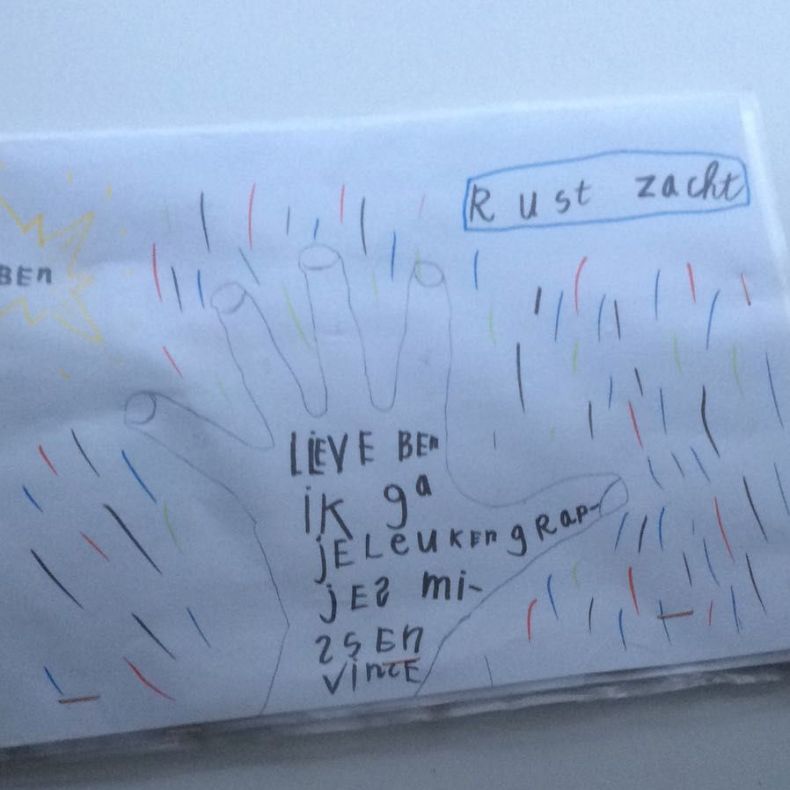 Rust zacht
BEn
LIEVE BEn
iK ga
jELeuKEngRap-
jES mi-
SSEn
VinCE